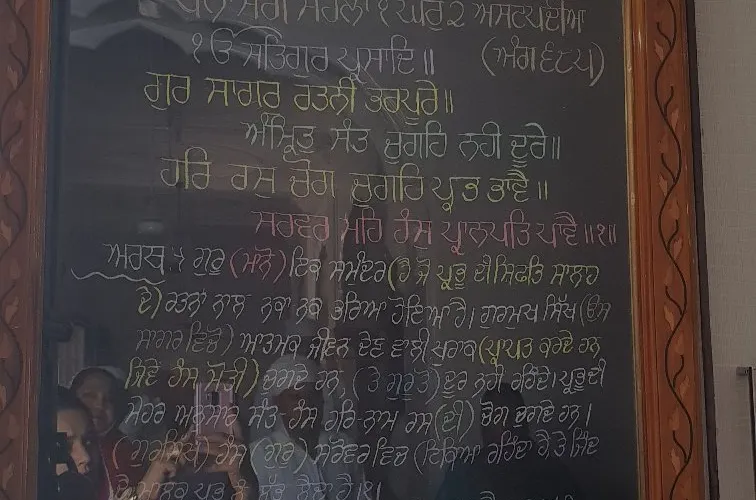 ਧਨਾਸਰੀ ਮਹਲਾ ੧ ਘਰੁ ੨ ਅਸਟਪਦੀਆ
੧ਓ ਸਤਿਗੁਰ ਪ੍ਰਸਾਦਿ॥ (ਅੰਗ ੬੮੫)
ਗੁਰੁ ਸਾਗਰੁ ਰਤਨੀ ਭਰਪੂਰੇ॥
ਅੰਮ੍ਰਿਤੁ ਸੰਤ ਚੁਗਹਿ ਨਹੀ ਦੂਰੇ॥
ਹਰਿ ਰਸੁ ਚੋਗ ਚੁਗਹਿ ਪ੍ਰਭ ਭਾਵੈ॥
ਸਰਵਰ ਮਹਿ ਹੰਸੁ ਪ੍ਰਾਨਪਤਿ ਪਾਵੈ॥੧॥
ਅਰਥ : ਗੁਰੂ (ਮਾਨੋ) ਇਕ ਸਮੁੰਦਰ (ਹੈ ਜੋ ਪ੍ਰਭੂ ਦੀ ਸਿਫਤਿ ਸਾਲਾਹ
ਦੇ) ਰਤਨਾਂ ਨਾਲ ਨਕਾ ਨਕ ਭਰਿਆ ਹੋਇਆ ਹੈ। ਗੁਰਮੁਖ ਸਿੱਖ (ਉਸ
ਸਾਗਰ ਵਿਚੋਂ) ਆਤਮਕ ਜੀਵਨ ਦੇਣ ਵਾਲੀ ਖੁਰਾਕ (ਪ੍ਰਾਪਤ ਕਰਦੇ ਹਨ
ਜਿਵੇਂ ਹੰਸ ਮੋਤੀ) ਚੁਗਦੇ ਹਨ, (ਤੇ ਗੁਰੂ ਤੋਂ) ਦੂਰ ਨਹੀਂ ਰਹਿੰਦੇ। ਪ੍ਰਭੂ ਦੀ
ਮੇਹਰ ਅਨੁਸਾਰ ਸੰਤ-ਹੰਸ ਹਰਿ ਨਾਮ ਰਸ (ਦੀ) ਚੋਗ ਚੁਗਦੇ ਹਨ।
(ਗੁਰਸਿੱਖ) ਹੰਸ (ਗੁਰੂ) ਸਰੋਵਰ ਵਿਚ (ਟਿਕਿਆ ਰਹਿੰਦਾ ਹੈ, ਤੇ ਜਿੰਦ
ਦੇ ਮਾਲਕ ਪ੍ਰਭੂ ਨੂੰ ਲੱਭ ਲੈਂਦਾ ਹੈ।੧।